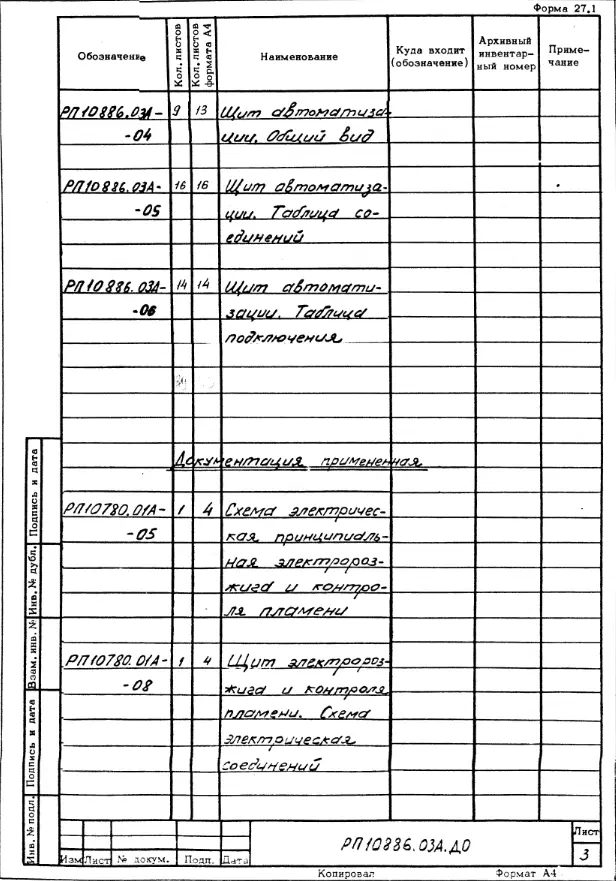 Форма 27.1
Обозначение
Кол. листов
Кол. листов формата А4
Наименование
Куда входит (обозначение)
Архивный инвентар-ный номер
Приме-чание
РП10886.03А- 9 13 Щит автоматиза-
-04 ции. Общий вид
РП10886.03А- 16 16 Щит автоматиза-
-05 ции. Таблица со-
единений
РП10886.03А- 14 14 Щит автомати-
-06 зации. Таблица
подключения
Документация примененная
РП10780.01А- 1 4 Схема электричес-
-05 кая принципиаль-
ная электророз-
жига и контро-
ля пламени
РП10780.01А- 1 4 Щит электророз-
-08 жига и контроля
пламени. Схема
электрическая
соединений
Инв. № подл.
Подпись и дата
Взам. инв. №
Инв. № дубл.
Подпись и дата
Изм Лист № докум. Подп. Дата
РП10886.03А.Д0
Лист
3
Копировал Формат А4